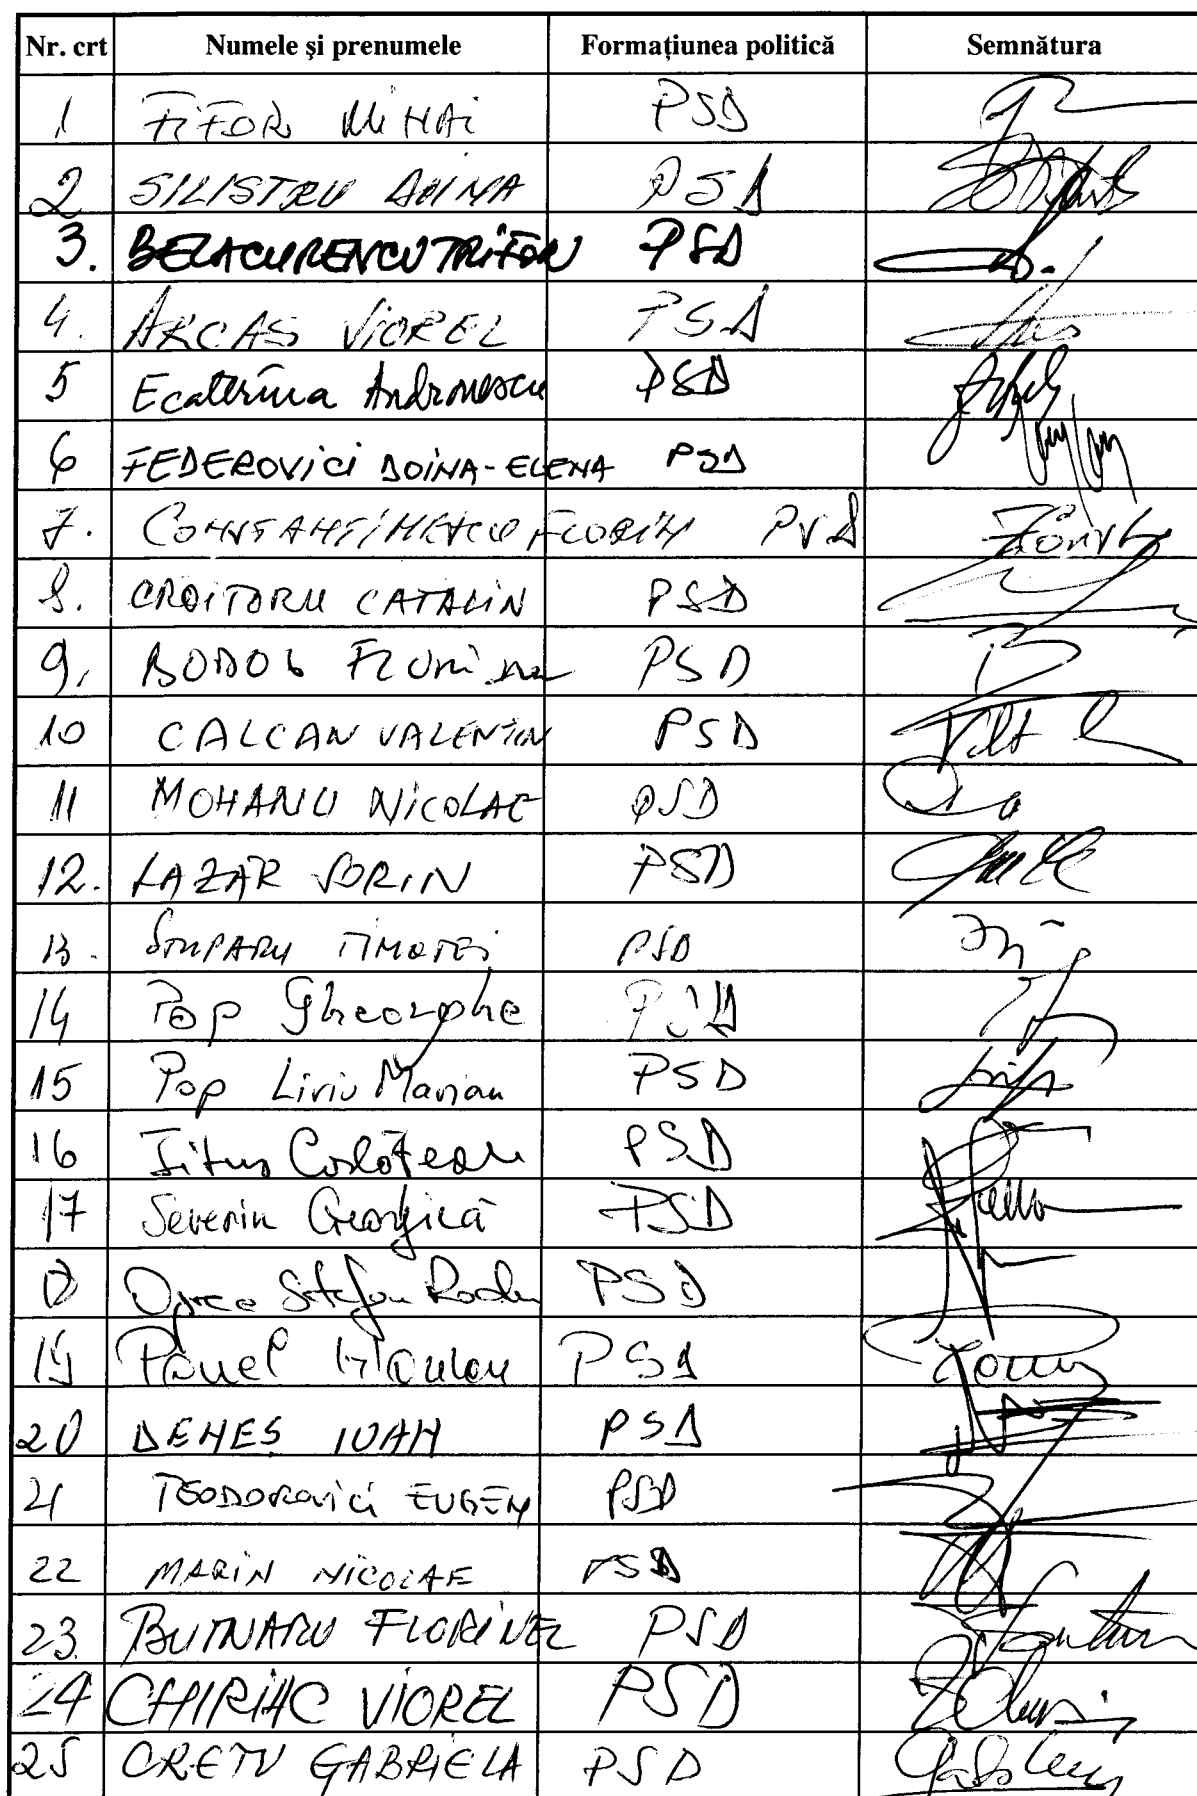 Nr. crt Numele și prenumele Formațiunea politică Semnătura
1 FIFOR MIHAI PSD
2 SILISTRU DOINA PSD
3. BELACURENCU TRIFON PSD
4. ARCAS VIOREL PSD
5 Ecaterina Andronescu PSD
6 FEDEROVICI DOINA-ELENA PSD
7. CONSTANTINESCU FLORIN PSD
8. CROITORU CATALIN PSD
9. BODOG PSD
10 CALCAN VALENTIN PSD
11 MOHANU NICOLAE PSD
12. LAZAR SORIN PSD
13. STUPARU TIMOTEI PSD
14 Pop Gheorghe PSD
15 Pop Liviu Marian PSD
16 Titus Corlățean PSD
17 Severin Georgică PSD
18 Oprea Stefan Radu PSD
19 Pavel PSD
20 DENEȘ IOAN PSD
21 TEODOROVICI EUGEN PSD
22 MARIN NICOLAE PSD
23. BUTNARU FLORINEL PSD
24 CHIRIAC VIOREL PSD
25 CRETU GABRIELA PSD